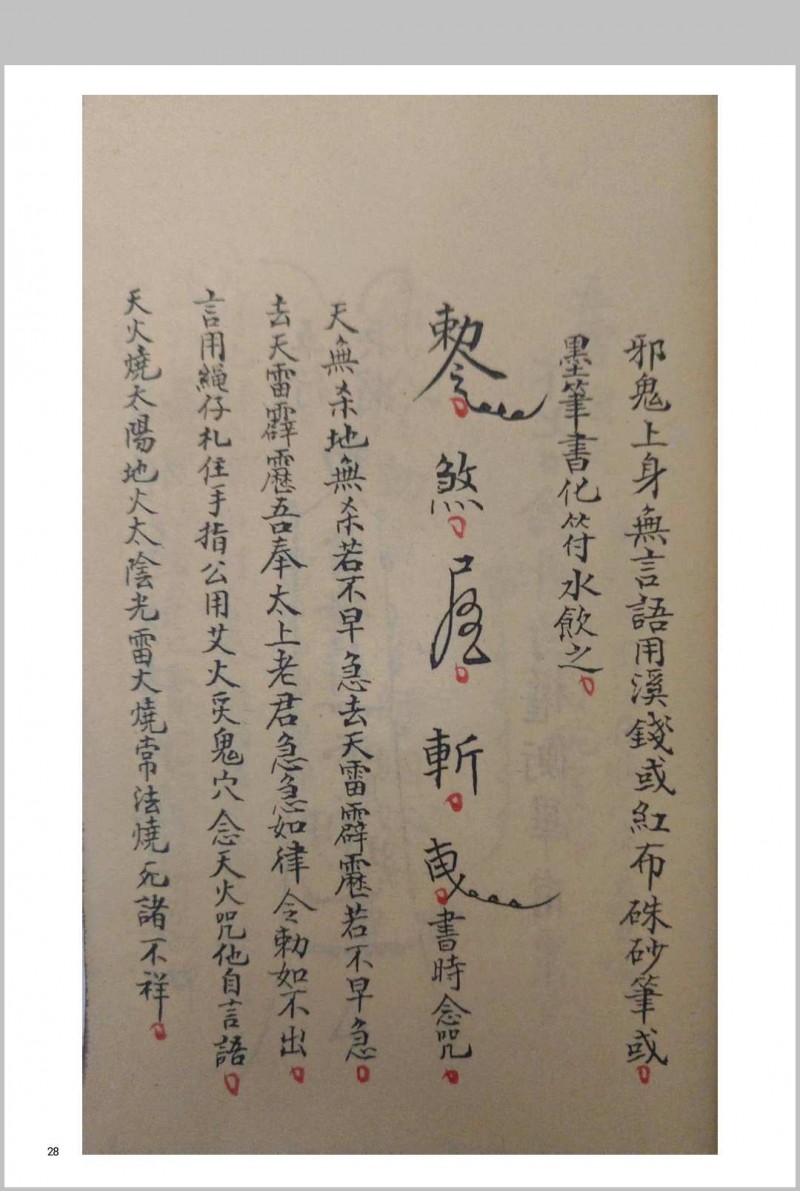 邪鬼上身無言語用溪錢或紅布硃砂筆或
墨筆書化符水飲之
勅令 煞 斬 書時念咒
天無杀地無杀若不早急去天雷霹靂若不早急
去天雷霹靂吾奉太上老君急急如律令勅如不出
言用繩仔札住手指公用艾火灸鬼穴念天火咒他自言語
天火燒太陽地火太陰光雷大燒常法燒死諸不祥
28